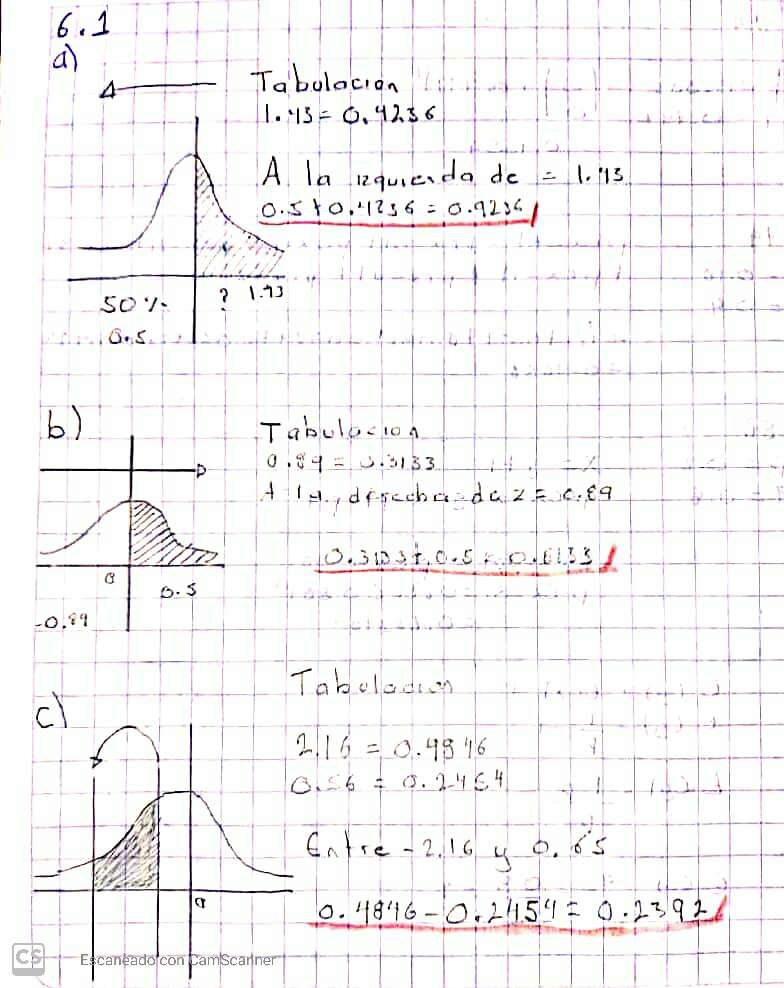 6.1
a)
Tabulacion
1.43 = 0.4236
A la izquierda de = 1.43
0.5 + 0.4236 = 0.9236
50 %
? 1.43
0.5
b)
Tabulacion
0.89 = 0.3133
A la derecha de z = 0.89
0.3133 + 0.5 = 0.8133
0
0.5
-0.89
Tabulacion
c)
2.16 = 0.4846
0.2454
Entre - 2.16 y 0.65
0
0.4846 - 0.2454 = 0.2392
CS Escaneado con CamScanner